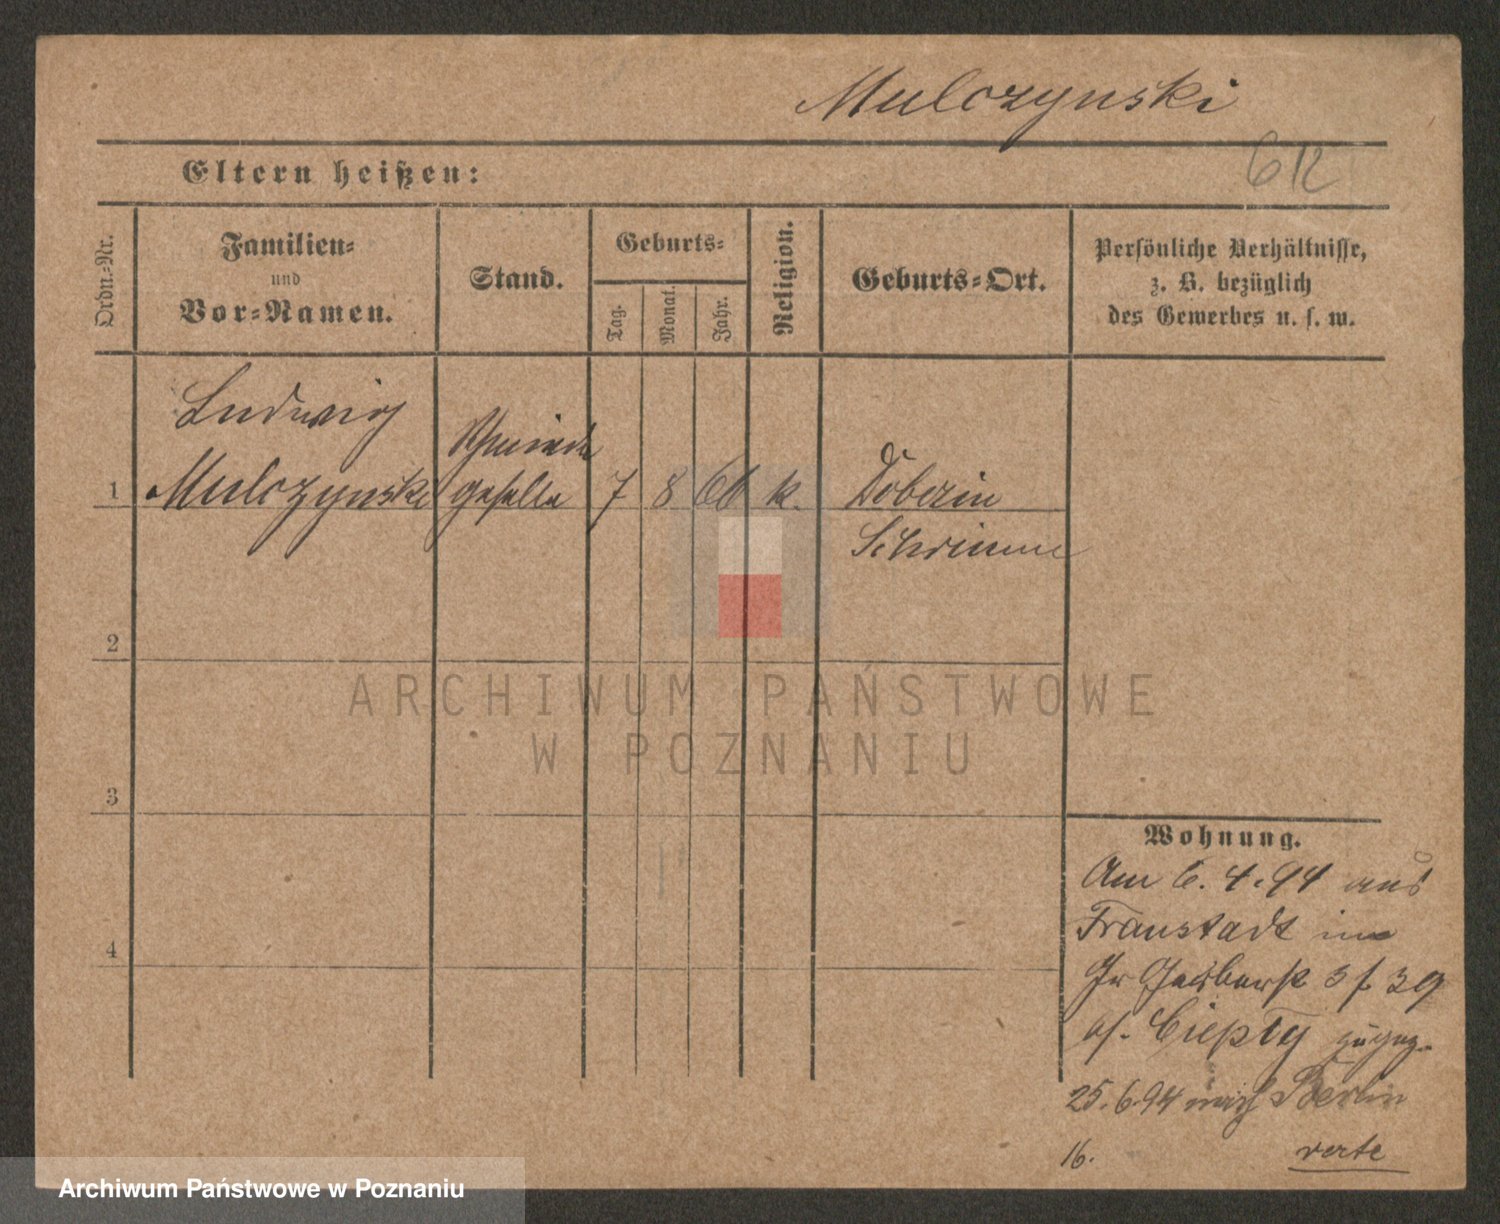 Mulczynski
612
Eltern heißen:
Ordn.-Nr.
Familien-
und
Vor-Namen.
Stand.
Geburts-
Tag.
Monat.
Jahr.
Religion.
Geburts-Ort.
Persönliche Verhältnisse,
z. B. bezüglich
des Gewerbes u. s. w.
1
Ludwig
Mulczynski
Schmiede
geselle
7
8
66
k.
Doberin
Schrimm
2
3
4
Wohnung.
Am 6.4.94 aus
Fraustadt in
Gr 3 39
Ciepły zugez.
25.6.94 nach Berlin
16.
verte
ARCHIWUM PAŃSTWOWE
W POZNANIU
Archiwum Państwowe w Poznaniu